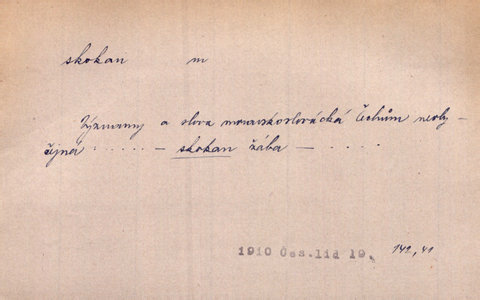 skokan m
Významy a slova moravskoslovácká Čechům neoby-
čejná ..... - skokan žába - .....
1910 Čes.lid 19. 142, 41